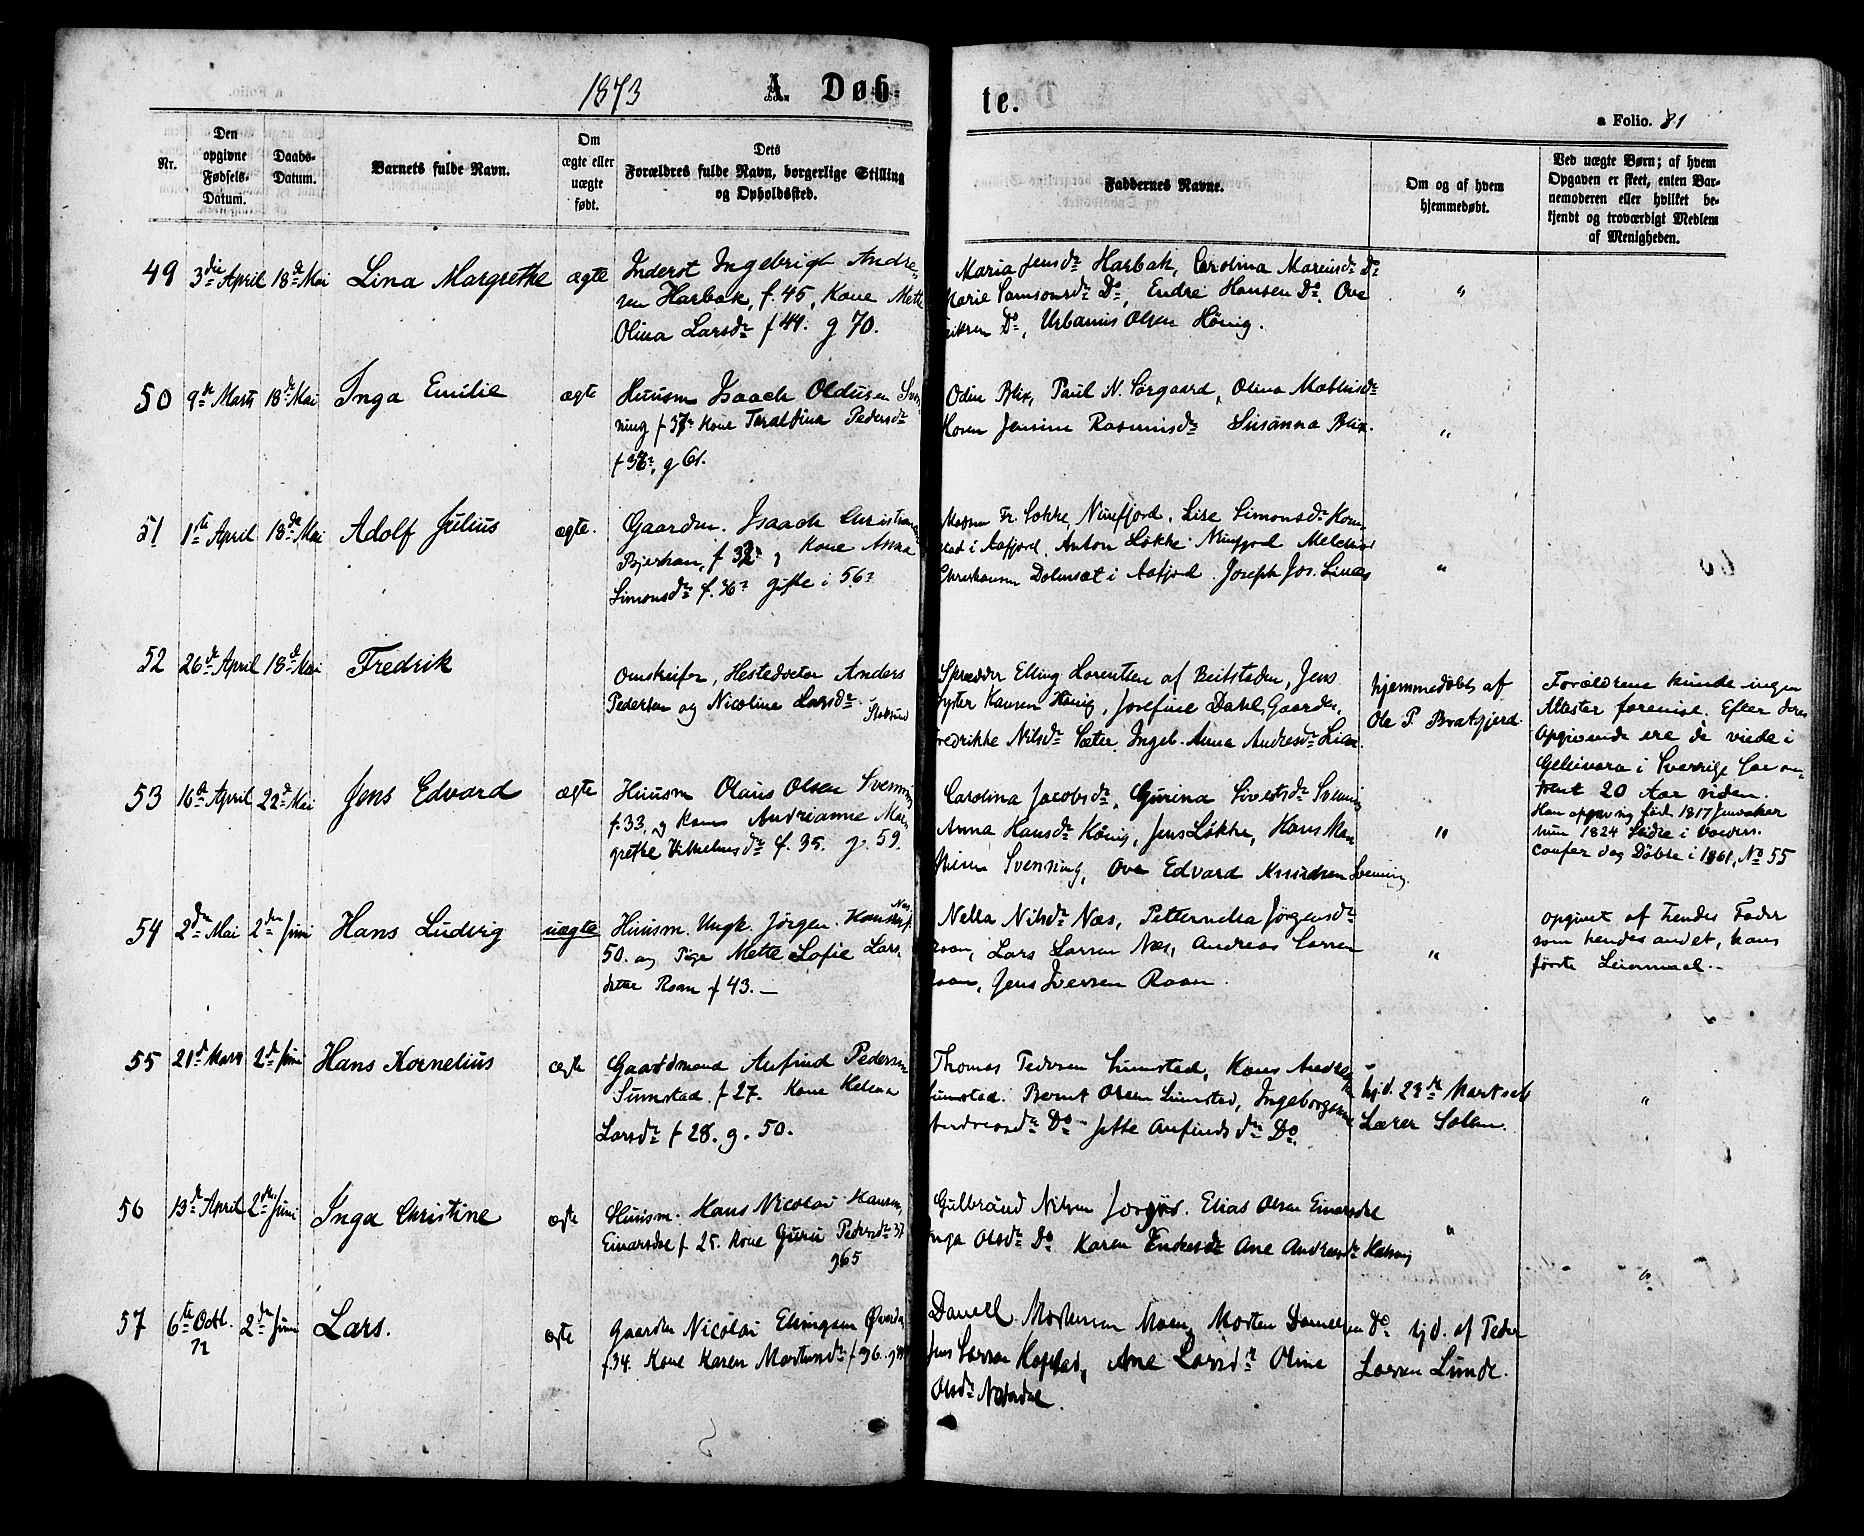 1873 A. Døb- te.
a Folio. 81
Nr.
Den opgivne Fødsels-Datum.
Daabs-Datum.
Barnets fulde Navn.
Om ægte eller uægte født.
Dets Forældres fulde Navn, borgerlige Stilling og Opholdssted.
Faddernes Navne.
Om og af hvem hjemmedøbt.
Ved uægte Børn; af hvem Opgaven er skeet, enten Barnemoderen eller hvilket bekjendt og troværdigt Medlem af Menigheden.
49 3die April 18de Mai Lina Margrethe ægte
Inderst Ingebrigt Andre-
sen Harbak, f. 45, Kone Mette
Olina Larsdr f 44. g 70.
Maria Jensdr Harbak, Carolina Mareusdr Do
Marie Samsonsdr Do, Endre Hansen Do. Ove
Do, Urbanus Olsen Hönig.
"
50 9de Marts 18de Mai Inga Emilie ægte
Huusm Isaach Oldusen Sven-
ning f 37 Kone Taraldina Pedersdr
f 38, g 61.
Odin Blix, Paul N. Sørgaard, Olina Mathisdr
Hoven Jensine Rasmusdr Susanna Blix.
"
51 1ste April 18de Mai Adolf Julius ægte.
Gaardm. Isaach Christian
f 32, Kone Anna
Simonsdr f. 36 gifte i 56
Fr. Løkke, Nürfjord. Lise Simonsdr
i Aafjord, Anton Løkke Melchior
i Aafjord. Joseph Jos. Lines
"
52 26de April 18de Mai Fredrik
Omstreifer, Hestedoctor Anders
Pedersen og Nicoline Larsdr
Stoksund
Elling Lorentsen af Beitstaden, Jens
Hansen Hönig, Josefine Dahl, Gaarder,
Fredrikke Nilsdr Sæter, Ingeb. Anna Andresdr Lien.
hjemmedøbt af
Ole P. Bratgjerd.
Forældrene kunde ingen
Attester forevise. Efter deres
Opgivende ere de viede i
Gellivara i Sverrige for om-
trent 20 Aar siden.
Han opgav sig født 1817 Jevnaker
hun 1824 Slidre i Valders.
confer dog Døbte i 1861, No 55
53 16de April 22de Mai Jens Edvard ægte
Huusm Olaus Olsen Svenning
f. 33, og Kone Andrianne Mar-
grethe Vilhelmsdr f. 35. g. 59.
Carolina Jacobsdr, Gurina Sivertsdr Svening
Anna Hansdr Hönig, Jens Løkke, Hans Man
Svenning, Ove Edvard Knudsen Svenning.
"
54 2den Mai 2den Juni Hans Ludvig uægte
Huusm. Ungk. Jørgen Hansen Næs f.
50. og Pige Mette Sofie Lars-
datter Roan f 43. —
Nella Nilsdr Næs, Petternelsa Jørgensdr
Roan, Lars Larsen Næs, Andreas Larsen
Roan, Jens Iversen Roan.
"
opgivet af hendes Fader
som hendes andet, hans
første Leiermaal.
55 21de Marts 2den Juni Hans Kornelius ægte
Gaardmand Anfind Pedersen
Sumstad. f 27. Kone Helena
Larsdr f 28. g. 50.
Thomas Pedersen Sumstad, Hans
Sumstad. Bernt Olsen Sumstad, Ingeborganna
Andreasdr Do - Jette Anfindsdr Do.
hjd. 23de Marts af
Lærer Solem.
"
56 13de April 2den Juni Inga Christine ægte
Huusm. Hans Nicolai Hansen,
Einarsdal f 25. Kone Guru Pedersdr 37
g65
Gulbrand Nilsen. Elias Olsen Einarsdal
Inga Olsdr Do Karen Endresdr Ane Andreasdr
"
57 6te Octbr. 72 2den Juni Lars. ægte
Gaardm Nicolai Elingsen
f 34. Kone Karen Martinsdr f 36.
Daniel Mortensen Moen, Morten Danielsen Do
Jens Larsen Hopstad, Ane Larsdr Oline
Olsdr
hjd. af Peder
Larsen Lunde.
"